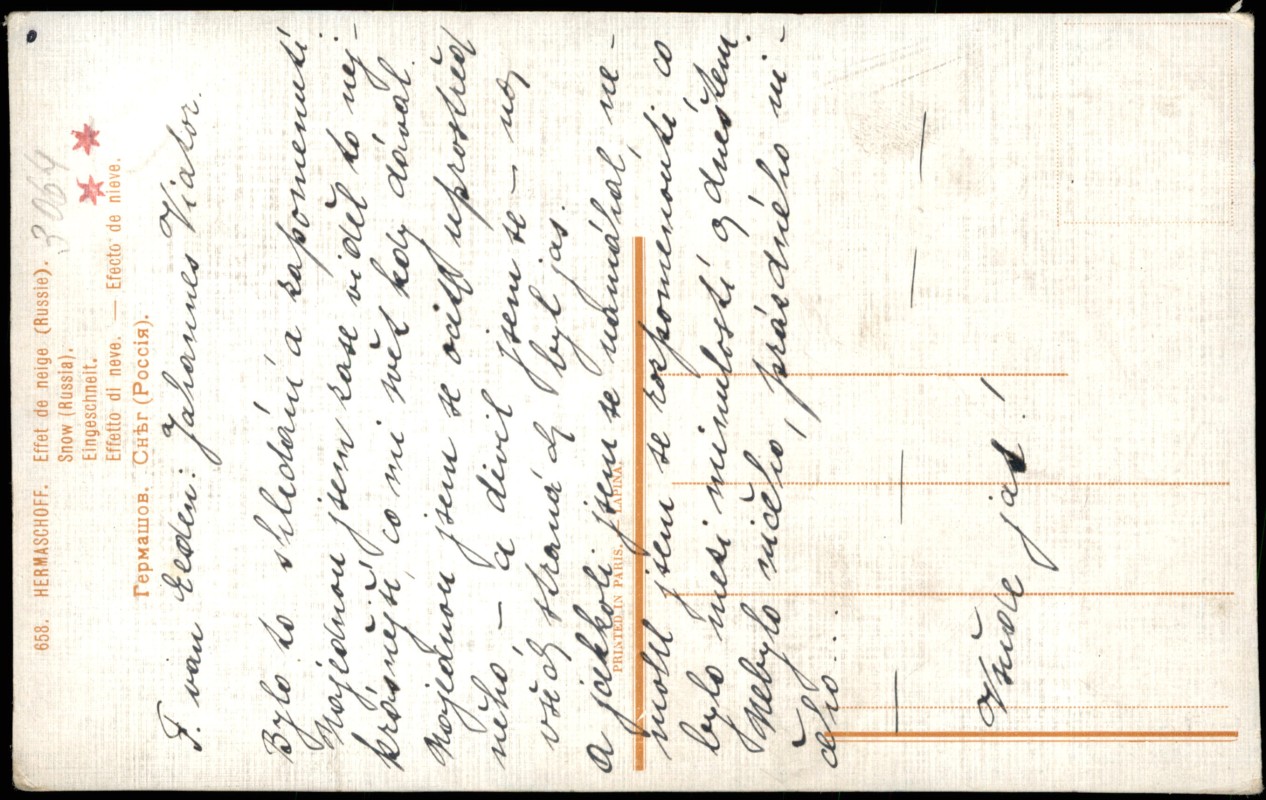 3064
658. HERMASCHOFF. Effet de neige (Russie).
Snow (Russia).
Eingeschneit.
Effetto di neve. — Efecto de nieve.
Германовъ. Снѣг (Россія).
F. van Eeden: Johannes Viator.
Bylo to shledání a zapomenutí
Najednou jsem zase viděl to nej-
krásnější, co mi svět kdy dával.
Najednou jsem se ocitl uprostřed
něho — a divil jsem se —
všady strana byl jas.
A jakkoli jsem se namáhal, ne-
mohl jsem se rozpomenouti co
bylo mezi minulostí a dneškem.
Nebylo ničeho, prázdného ni-
čeho..
PRINTED IN PARIS. — LAPINA.
Všude jas!